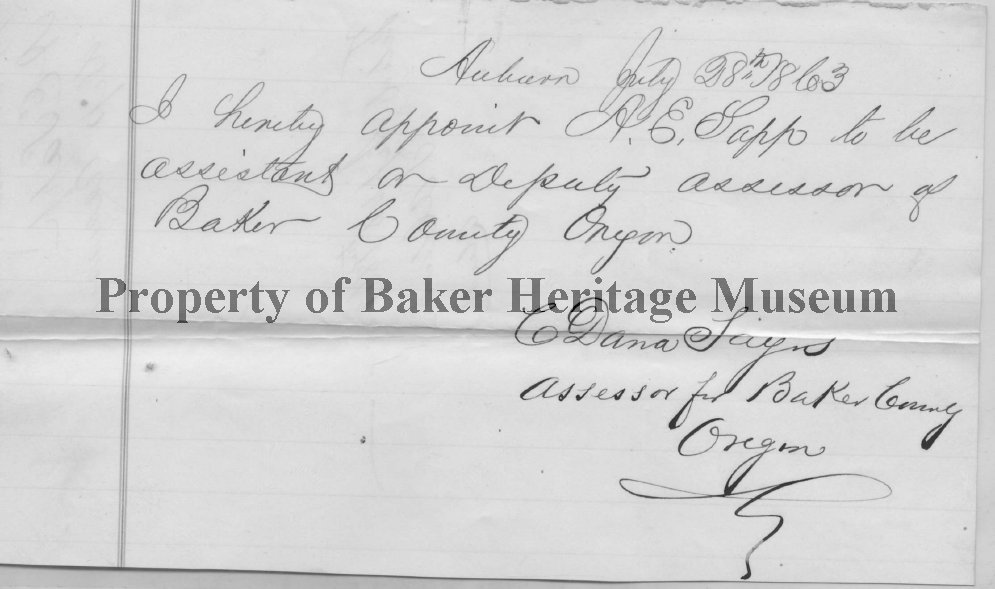 Auburn July 28th 1863
I hereby appoint A. E. Sapp to be
assistant or Deputy assessor of
Baker County Oregon.
Property of Baker Heritage Museum
C Dana
Assessor for Baker County
Oregon